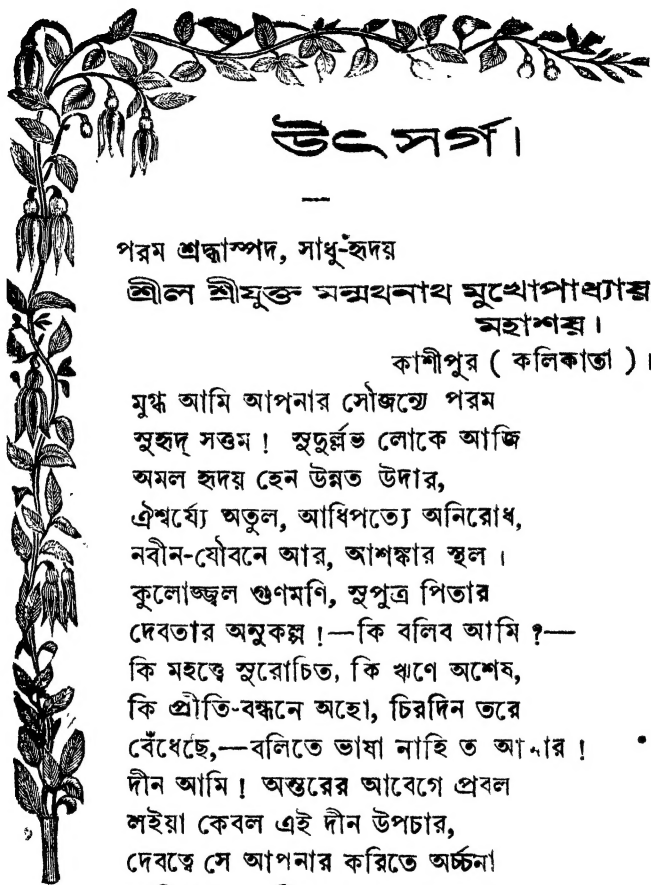 উৎসর্গ।
পরম শ্রদ্ধাস্পদ, সাধু-হৃদয়
শ্রীল শ্রীযুক্ত মন্মথনাথ মুখোপাধ্যায়
মহাশয়।
কাশীপুর ( কলিকাতা )।
মুগ্ধ আমি আপনার সৌজন্যে পরম
সুহৃদ্ সত্তম ! সুদুর্ল্লভ লোকে আজি
অমল হৃদয় হেন উন্নত উদার,
ঐশ্বর্য্যে অতুল, আধিপত্যে অনিরোধ,
নবীন-যৌবনে আর, আশঙ্কার স্থল ।
কুলোজ্জ্বল গুণমণি, সুপুত্র পিতার
দেবতার অনুকল্প !—কি বলিব আমি ?—
কি মহত্ত্বে সুরোচিত, কি ঋণে অশেষ,
কি প্রীতি-বন্ধনে অহো, চিরদিন তরে
বেঁধেছে,—বলিতে ভাষা নাহি ত !
দীন আমি ! অন্তরের আবেগে প্রবল
লইয়া কেবল এই দীন উপচার,
দেবত্বে সে আপনার করিতে অর্চ্চনা